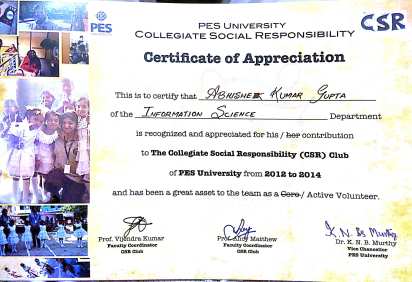 PES UNIVERSITY
COLLEGIATE SOCIAL RESPONSIBILITY
PES
CSR
Certificate of Appreciation
This is to certify that ABHISHEK KUMAR GUPTA
of the INFORMATION SCIENCE Department
is recognized and appreciated for his / her contribution
to The Collegiate Social Responsibility (CSR) Club
of PES University from 2012 to 2014
and has been a great asset to the team as a Core / Active Volunteer.
Prof. Vijendra Kumar
Faculty Coordinator
CSR Club
Prof. Andy Matthew
Faculty Coordinator
CSR Club
K. N. B. Murthy
Dr. K. N. B. Murthy
Vice Chancellor
PES University